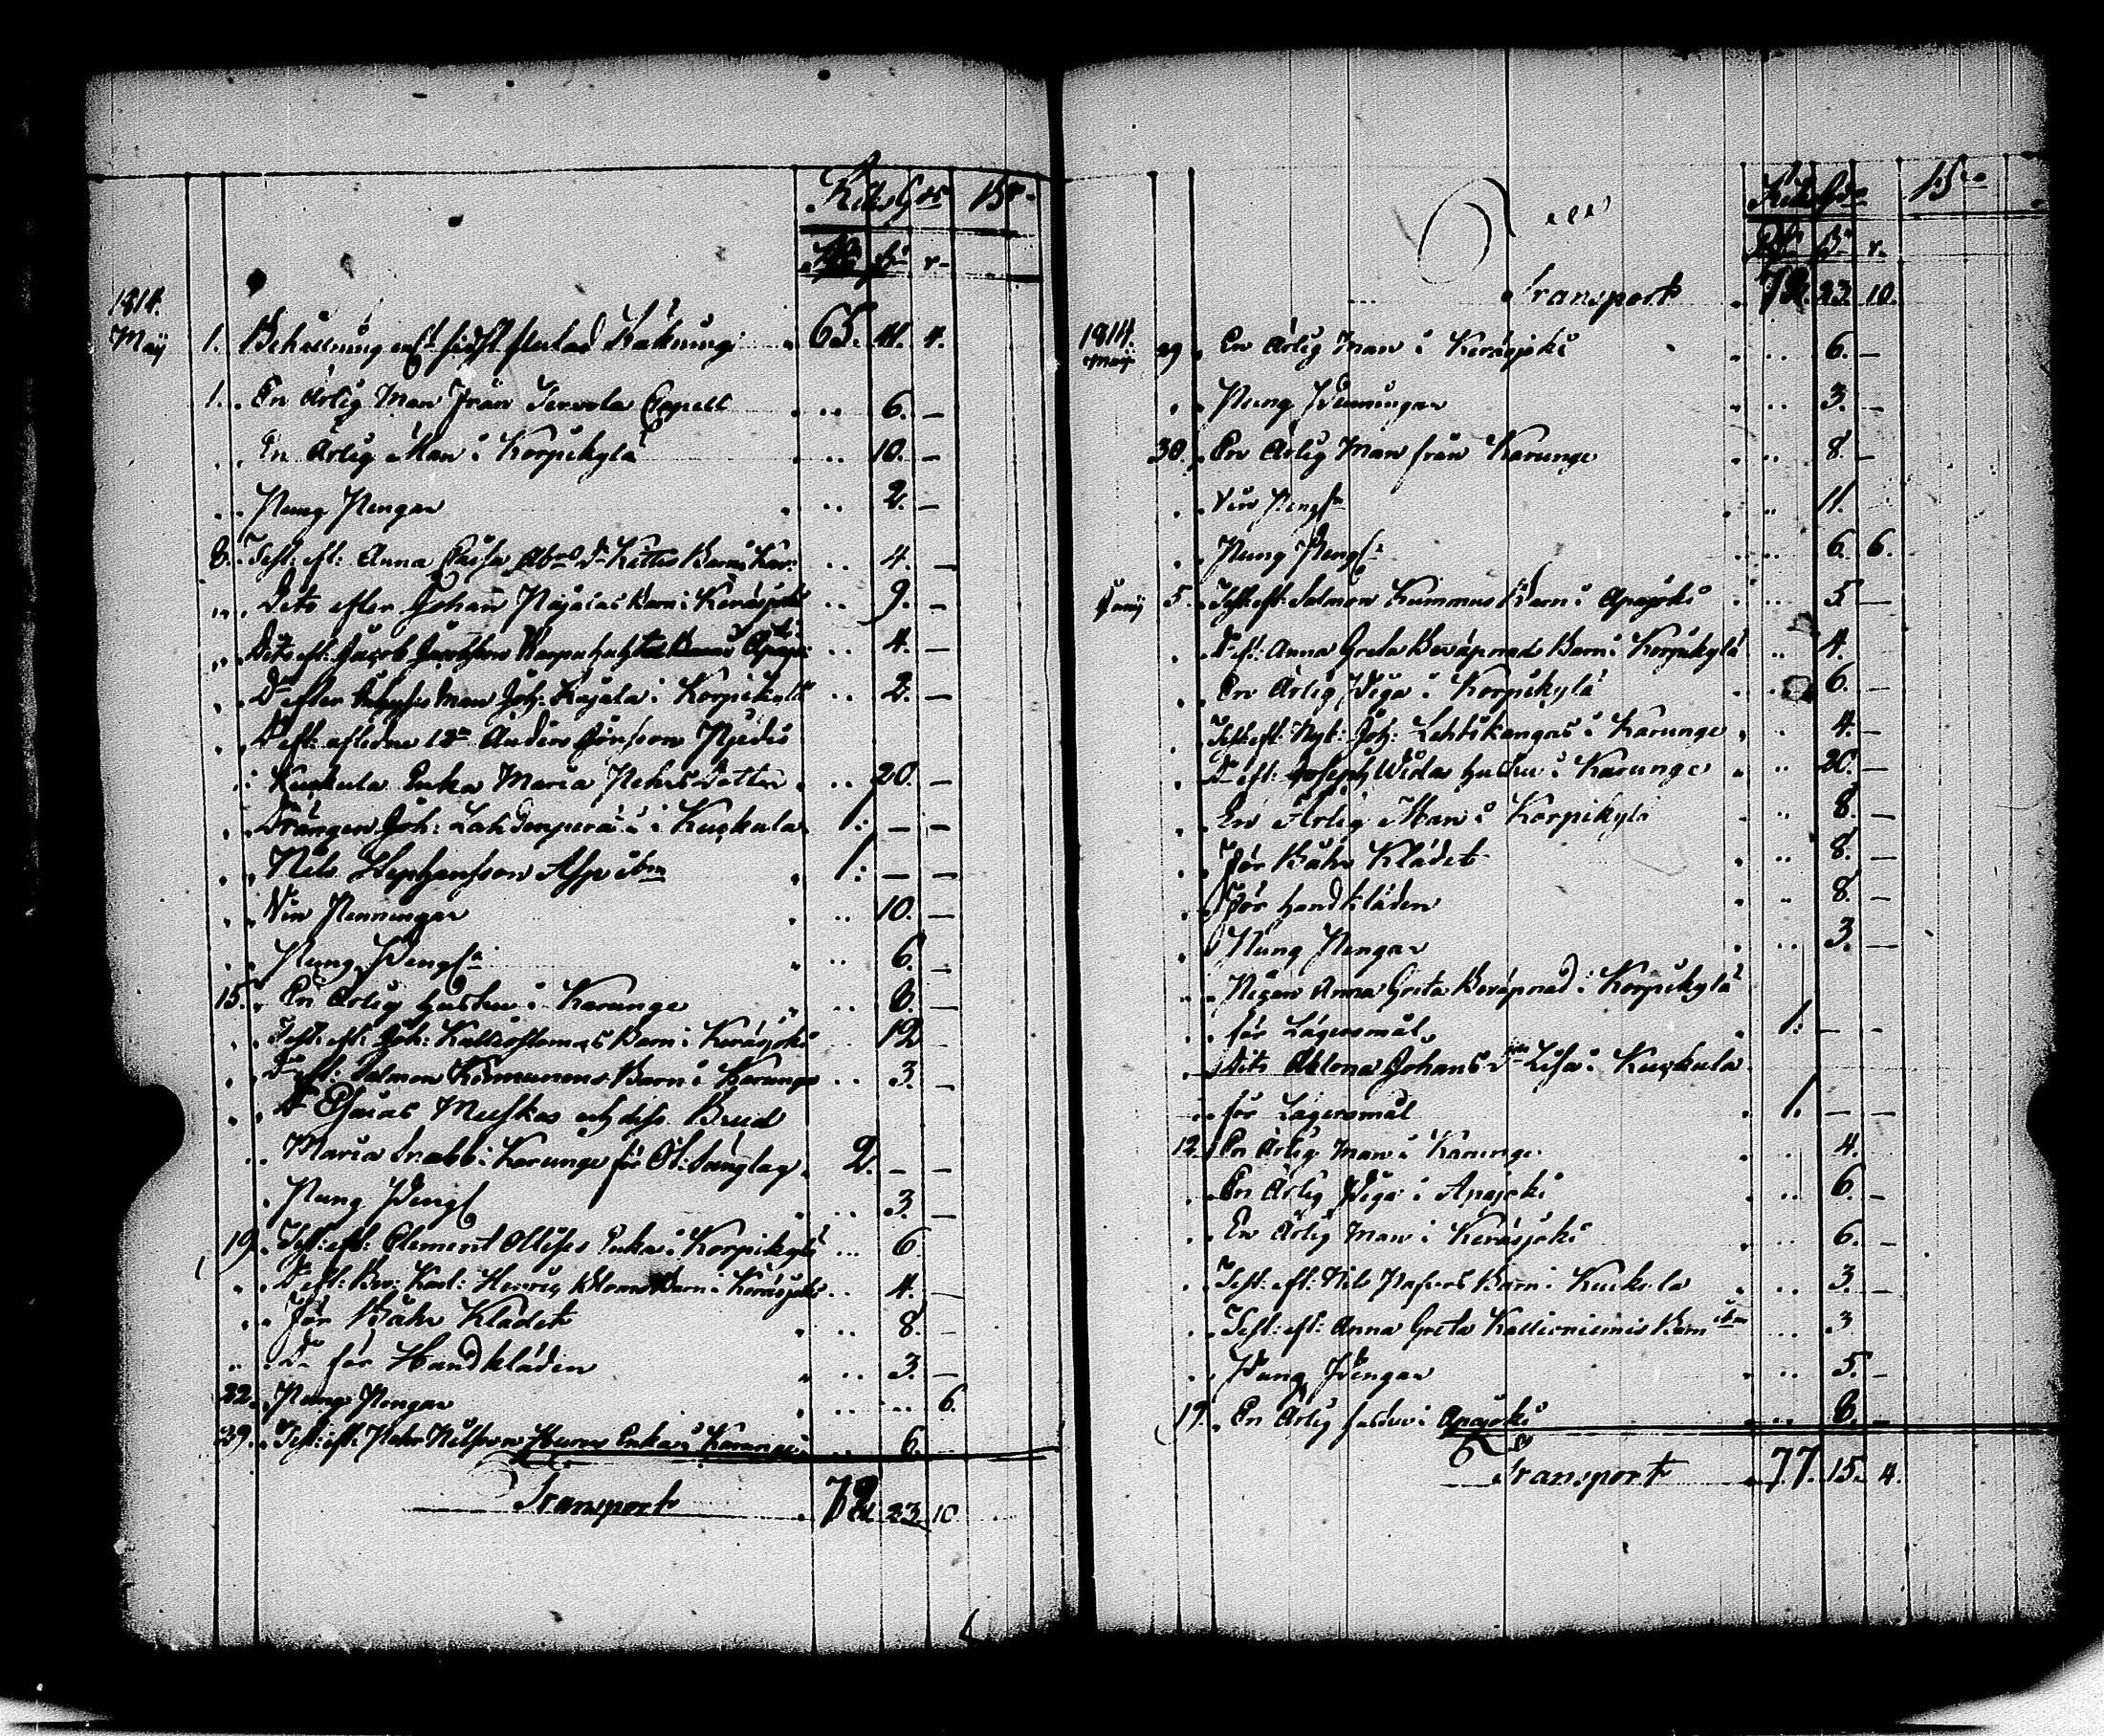 Riks Gds Bco
Rd ß r
1814.
Maij 1. Behållning enligt sidst slutad Räkning 65. 41. 4.
1. En Ärlig Man från Tervola Capell 6. —
En Ärlig Man i Korpikylä 10. —
Pung Pengar 2. —
8. Test: eft: Anna Caisa Abrs Dr Kittis Barn i Kar: 4. —
Dito efter Johan Pajaias Barn i Keräsjoki 9. —
Dito eft: Jacob Barn i Apajo: 4. —
Do efter Man Joh: Kajala i Korpikylä 2. —
Do eft: aflidne Anders Jönsson
Kuckula Enka Maria Pehrs Dotter 20. —
Drängen Joh: Lahdenperä i Kuckula 1: — —
Nils Stephansson Asp ibm 1: — —
Vin Penningar 10. —
Pung Peng: 6. —
15. En Ärlig hustru i Karunge 8. —
Test: eft: Joh: Barn i Keräsjoki 12
Do eft: Salmon Kummunens Barn i Karunge 3. —
Do Esaias Muskos och dess Brud
Maria Snabb i Karunge för 2. — —
Pung Peng 3. —
19. Test: eft: Clement Ollises Enka i Korpikylä 6
Do eft: Bev: Karl: Henric Barn i Keräsjoki 4. —
För Båhr Klädet 8. —
Do för Handkläden 3. —
22. Pung Pengar 6.
29. Test: eft: Pehr Nilsson Enka i Karunge 6.
Transport 72. 23. 10
Riks Gds Bco
Rd ß r.
Transport 72. 23. 10.
1814.
Maij 29 En Ärlig Man i Keräsjoki 6. —
Pung Penningar 3. —
30. En Ärlig Man från Karunge 8. —
Vin Peng 11.
Pung Peng: 6. 6.
Junij 5. Test: eft: Salmon Kummus Barn i Apajoki 5 —
Do ef: Anna Greta Beväpnads Barn i Korpikylä 4.
En Ärlig Piga i Korpikylä 6. —
Test: eft: Nyb: Joh: Lehtikangas i Karunge 4. —
Do eft: Joseph Widas hustru i Karunge 20. —
En Ärlig Man i Korpikylä 8. —
För Båhr Klädet 8. —
För handkläden 8. —
Pung Pengar 3. —
Pigan Anna Greta Beväpnad i Korpikylä
för Lägersmål 1: — —
Dito Johans Dr Lisa i Kuckula
för Lägersmål 1. — —
12. En Ärlig Man i Karunge 4.
En Ärlig Piga i Apajoki 6. —
En Ärlig Man i Keräsjoki 6. —
Test: eft: Nils Barn i Kuckula 3. —
Test: eft: Anna Greta Kallioniemis Barn ibm 3
Pung Pengar 5. —
19. En Ärlig hustru i Apajoki 8. —
Transport 77. 15. 4.